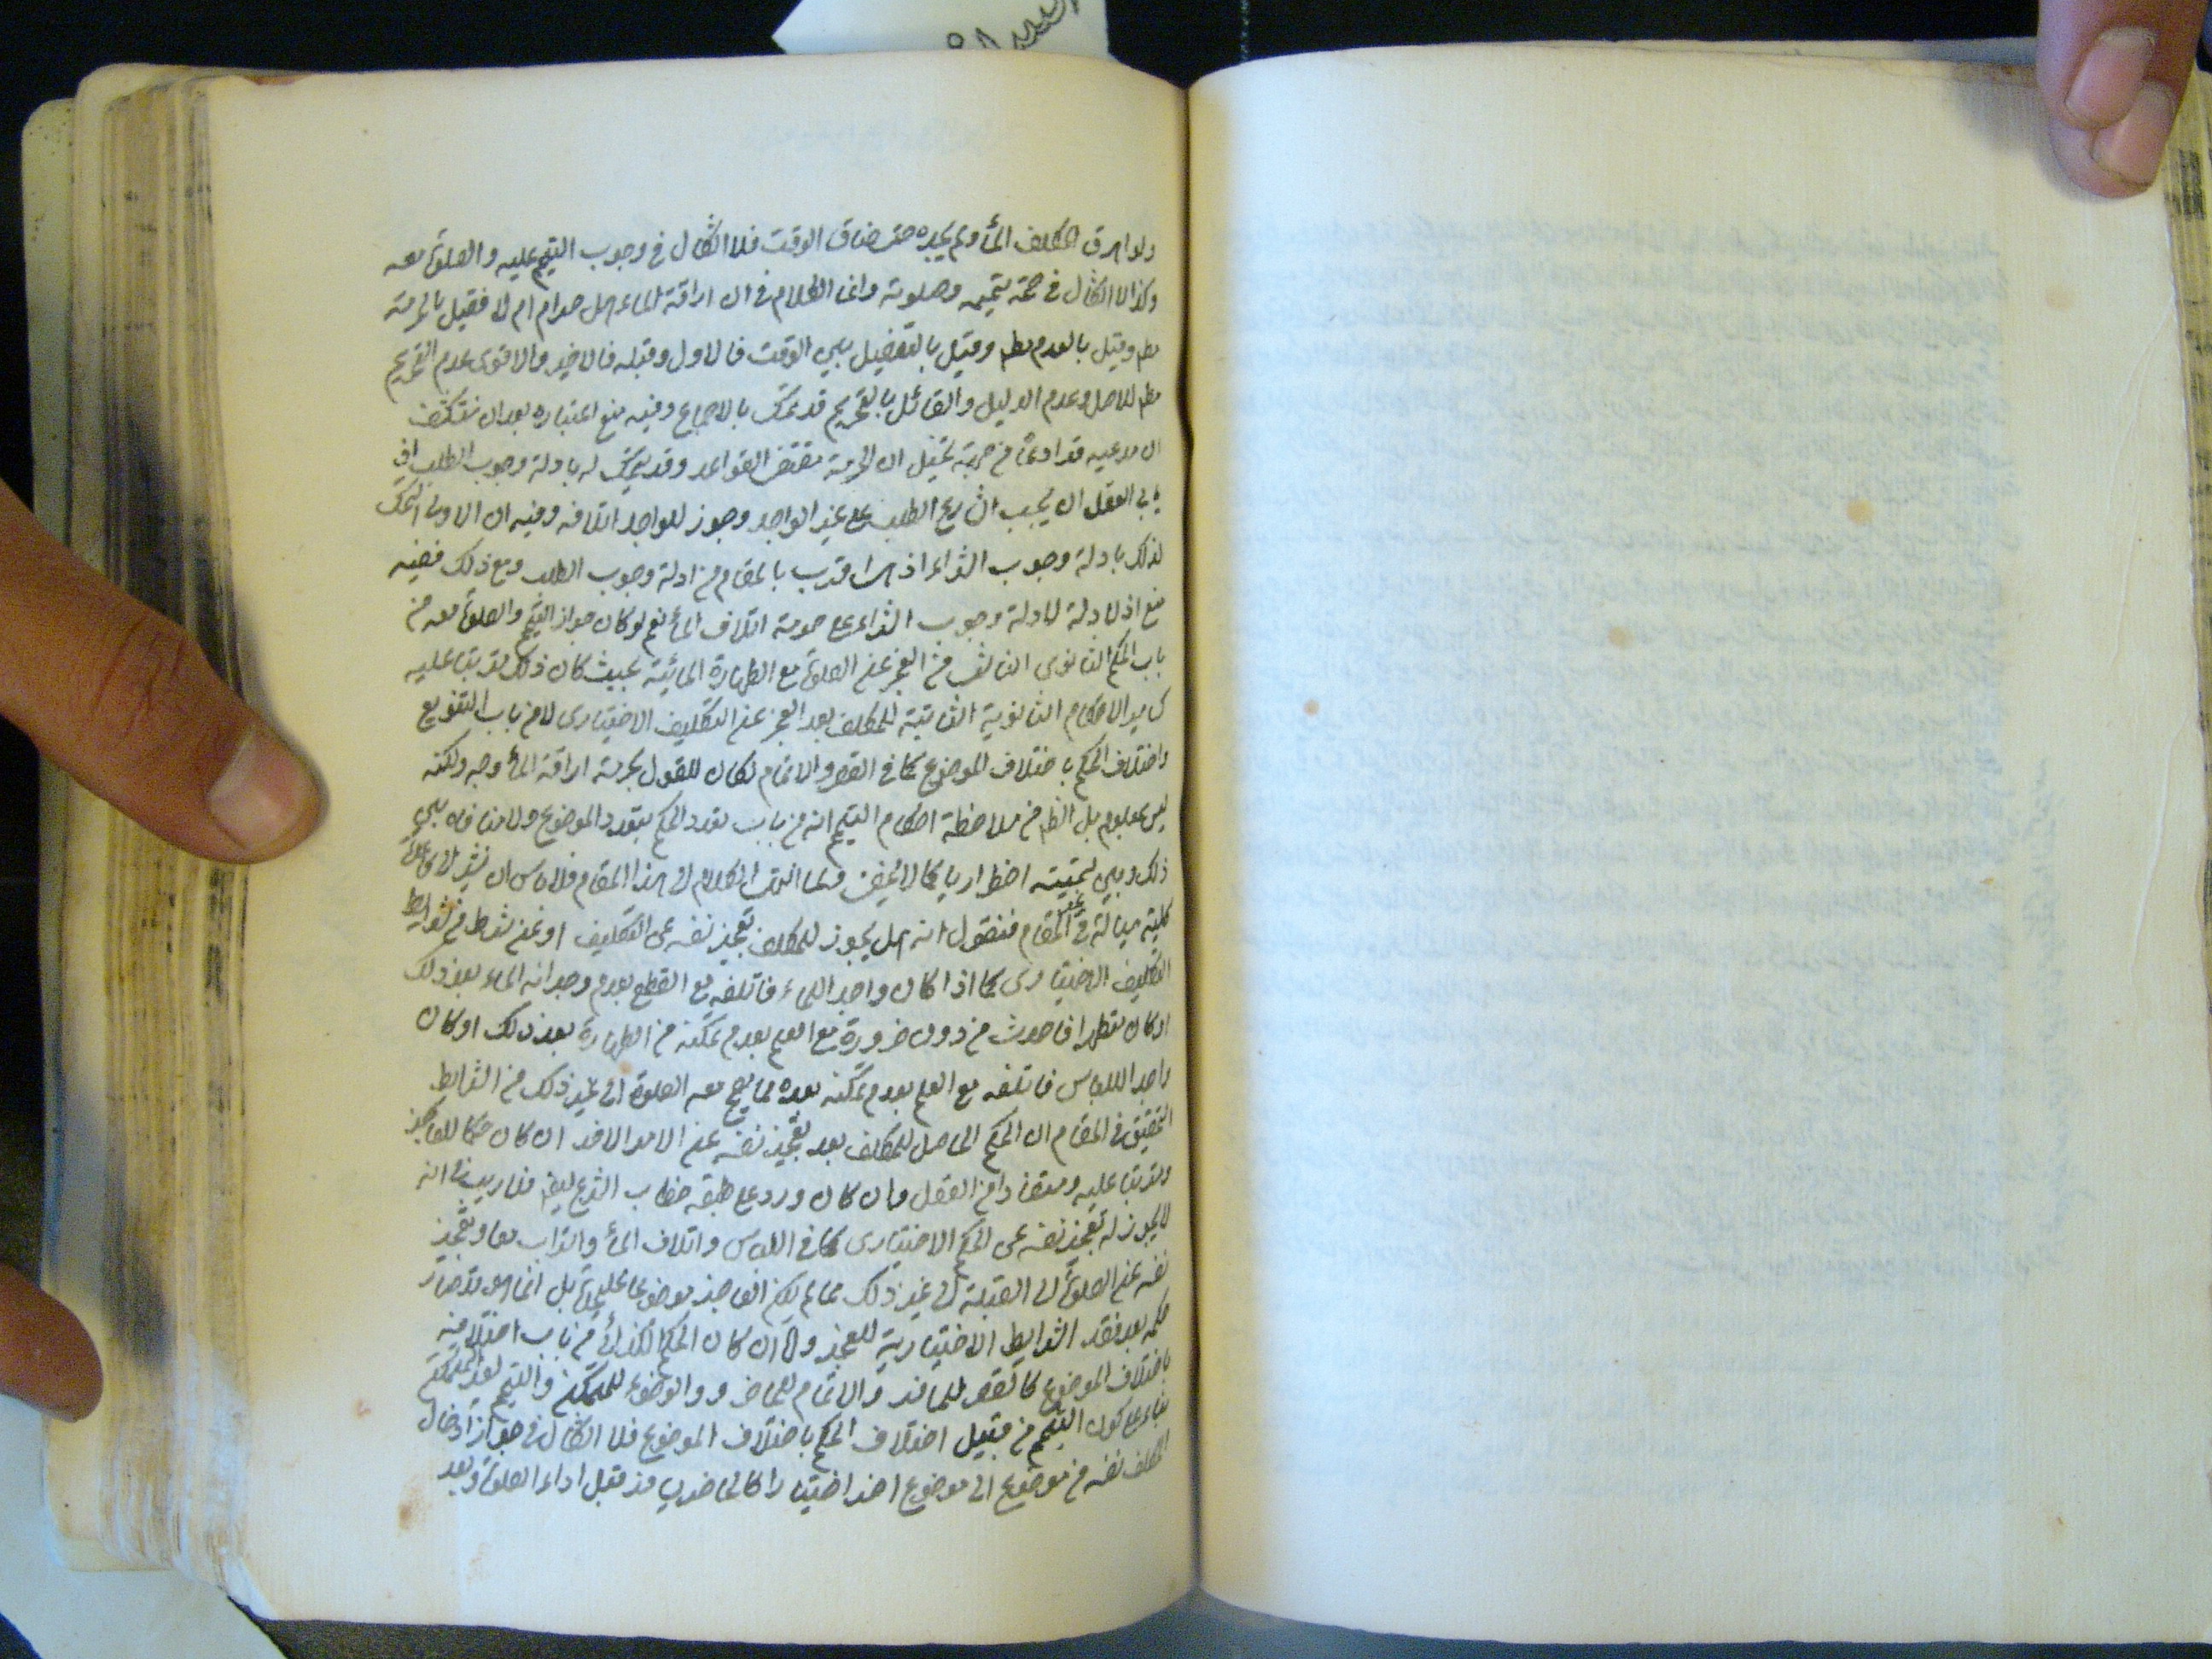 ولو اهرق المكلف الماء ولم يجده حتى ضاق الوقت فلا اشكال في وجوب التيمم عليه والصلوة معه
وكذا لا اشكال في صحة تيممه وصلوته وانما الكلام في ان اراقة الماء هل حرام ام لا فقيل بالحرمة
مطم وقيل بالعدم مطم وقيل بالتفصيل بين الوقت فالاول وقبله فالاخير والاقوى عدم التحريم
مطم للاصل وعدم الدليل والقائل بالتحريم قد تمسك بالاجماع وفيه منع اعتباره بعد ان ينكشف
ان مدعيه قد ادعاه من جهة تخيل ان الحرمة مقتضى القواعد وقد يتمسك له بادلة وجوب الطلب اذ
يابى العقل ان يجب الشارع الطلب على غير الواجد وجوز للواجد اتلافه وفيه ان الاولى التمسك
لذلك بادلة وجوب الشراء اذ هي اقرب بالمقام من ادلة وجوب الطلب ومع ذلك ففيه
منع اذ لا دلالة لادلة وجوب الشراء على حرمة اتلاف الماء نعم لو كان جواز التيمم والصلوة معه من
باب الحكم الثانوى الناشى من العجز عن الصلوة مع الطهارة المائية بحيث كان ذلك مترتبا عليه
كساير الاحكام الثانوية الثابتة للمكلف بعد العجز عن التكليف الاختيارى لا من باب التنويع
واختلاف الحكم باختلاف الموضوع كما في القصر والاتمام لكان للقول بحرمة اراقة الماء وجه ولكنه
ليس بمعلوم بل الظ من ملاحظة احكام التيمم انه من باب تعدد الحكم بتعدد الموضوع ولا منافاة بين
ذلك وبين تسميته اضطراريا كما لا يخفى ولما انتهى الكلام الى هذا المقام فلا باس ان نشير الى
كلية سيالة في غير المقام فنقول انه هل يجوز للمكلف تعجيز نفسه عن التكليف او عن شرط من شرايط
التكليف الاختيارى كما اذا كان واجد الماء فاتلفه مع القطع بعدم وجدانه الماء بعد ذلك
او كان متطهرا فاحدث من دون ضرورة مع العلم بعدم تمكنه من الطهارة بعد ذلك او كان
واجد اللباس فاتلفه مع العلم بعدم تمكنه بعده مما يصح معه الصلوة الى غير ذلك من الشرايط
التحقيق في المقام ان الحكم الحاصل للمكلف بعد تعجيز نفسه عن الامر الاخر ان كان حكما للعاجز
ومترتبا عليه ومستفادا من العقل وان كان ورد على طبقه خطاب الشرع ايضا فلا ريب في انه
لا يجوز له تعجيز نفسه عن الحكم الاختيارى كما في اللباس واتلاف الماء والتراب معا وتعجيز
نفسه عن الصلوة الى القبلة الى غير ذلك مما لم يكن العاجز موضوعا عليحدة بل انما هو
حكمه بعد فقد الشرايط الاختيارية للعجز واما ان كان الحكم الكذائى من باب اختلافه
باختلاف الموضوع كالقصر للمسافر والاتمام للحاضر والوضوء للمتمكن والتيمم لغير المتمكن
بناء على كون التيمم من قبيل اختلاف الحكم باختلاف الموضوع فلا اشكال في جواز ادخال
المكلف نفسه من موضوع الى موضوع اخر اختيارا كالحاضر يسافر قبل اداء الصلوة وبعد